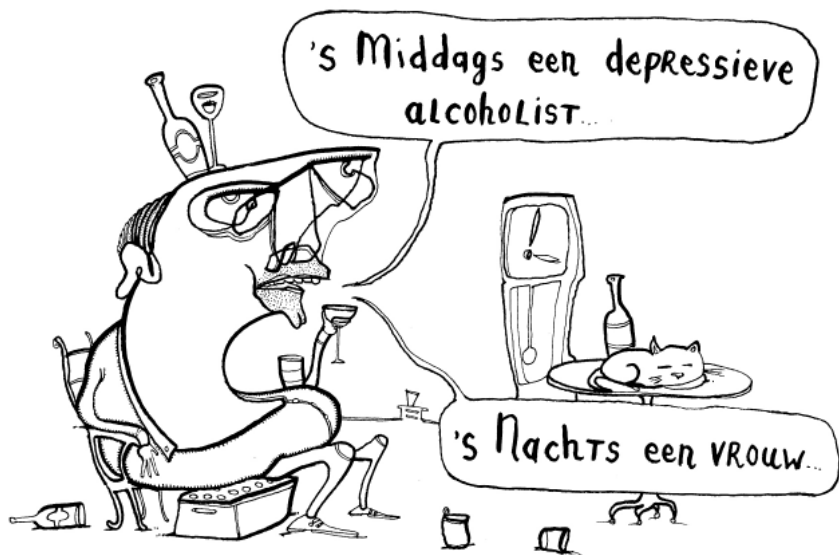 's Middags een depressieve
alcoholist...
's Nachts een vrouw...